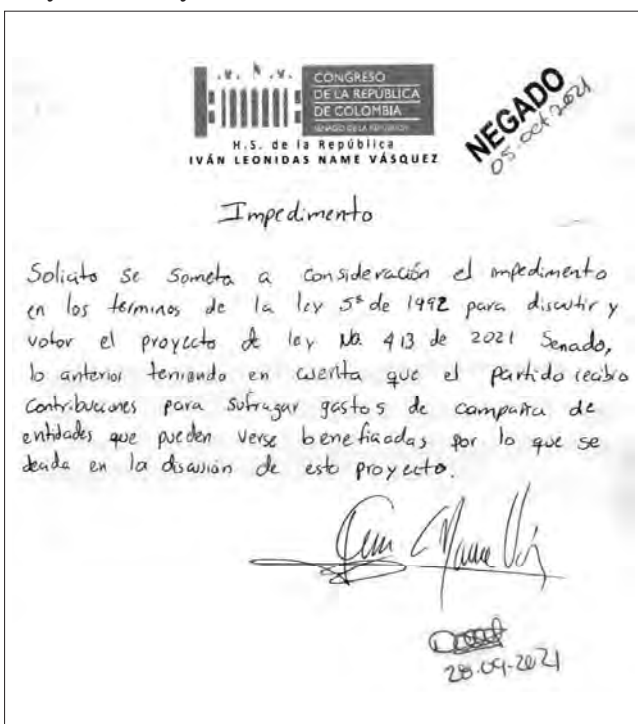 CONGRESO
DE LA REPÚBLICA
DE COLOMBIA
SENADO DE LA REPÚBLICA
H.S. de la República
IVÁN LEONIDAS NAME VÁSQUEZ
NEGADO
05.oct 2021
Impedimento
Solicito se someta a consideración el impedimento
en los términos de la ley 5ª de 1992 para discutir y
votar el proyecto de ley No. 413 de 2021 Senado,
lo anterior teniendo en cuenta que el partido recibio
contribuciones para sufragar gastos de campaña de
entidades que pueden verse beneficiadas por lo que se
decida en la discusión de este proyecto.
28.09-2021